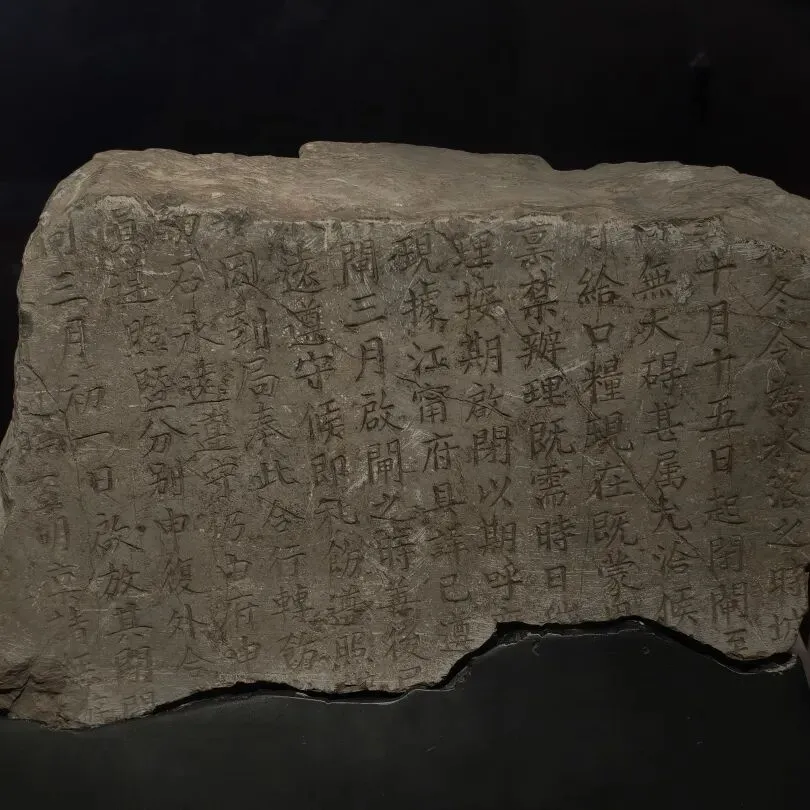 冬令為水落之時
十月十五日起閉閘至
無大碍甚属允洽候
給口糧現在既蒙
禀禁辦理既需時日
理按期啟閉以期呼
現據江甯府具詳已遵
閘三月啟閘之時善後
遠遵守候即札飭遵照
因到局奉此合行轉飭
石永遠遵守仍由府
遵照暨分别申復外合
三月初一日啟放其閉